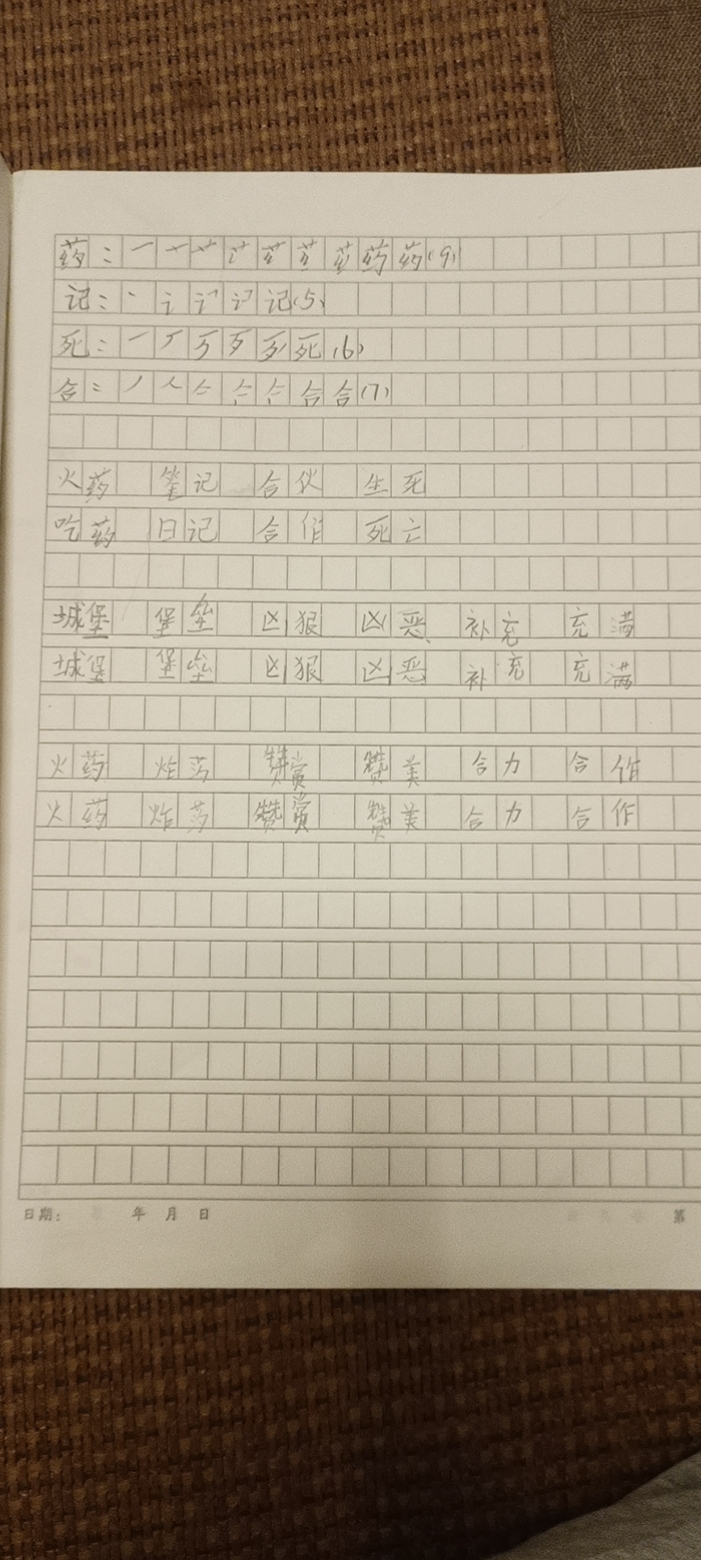 药：一 艹 药 药 (9)
记：丶 讠 记 (5)
死：一 丆 万 歹 歹 死 (6)
合：丿 人 亼 合 合 (7)
火药 笔记 合伙 生死
吃药 日记 合作 死亡
城堡 堡垒 凶狠 凶恶 补充 充满
城堡 堡垒 凶狠 凶恶 补充 充满
火药 炸药 赞赏 赞美 合力 合作
火药 炸药 赞赏 赞美 合力 合作
日期： 年 月 日 第